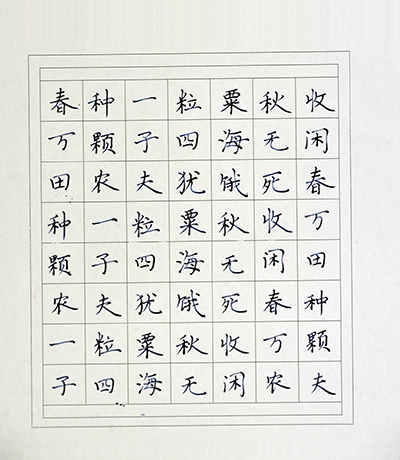 春种一粒粟秋收
万颗子四海无闲
田农夫犹饿死春
种一粒粟秋收万
颗子四海无闲田
农夫犹饿死春种
一粒粟秋收万颗
子四海无闲农夫